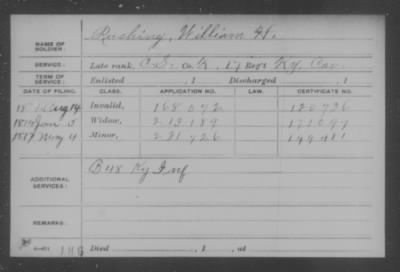 NAME OF SOLDIER: Rushing, William H.
SERVICE: Late rank, Co. K, 17 Reg't Ky. Cav.
TERM OF SERVICE: Enlisted , 1 Discharged , 1
DATE OF FILING. CLASS. APPLICATION NO. LAW. CERTIFICATE NO.
Aug 14 Invalid, 168072 120736
Jan 5 Widow, 213189 171097
May 4 Minor, 221726 149481
ADDITIONAL SERVICES: B 48 Ky Inf
REMARKS:
Died , 1 , at